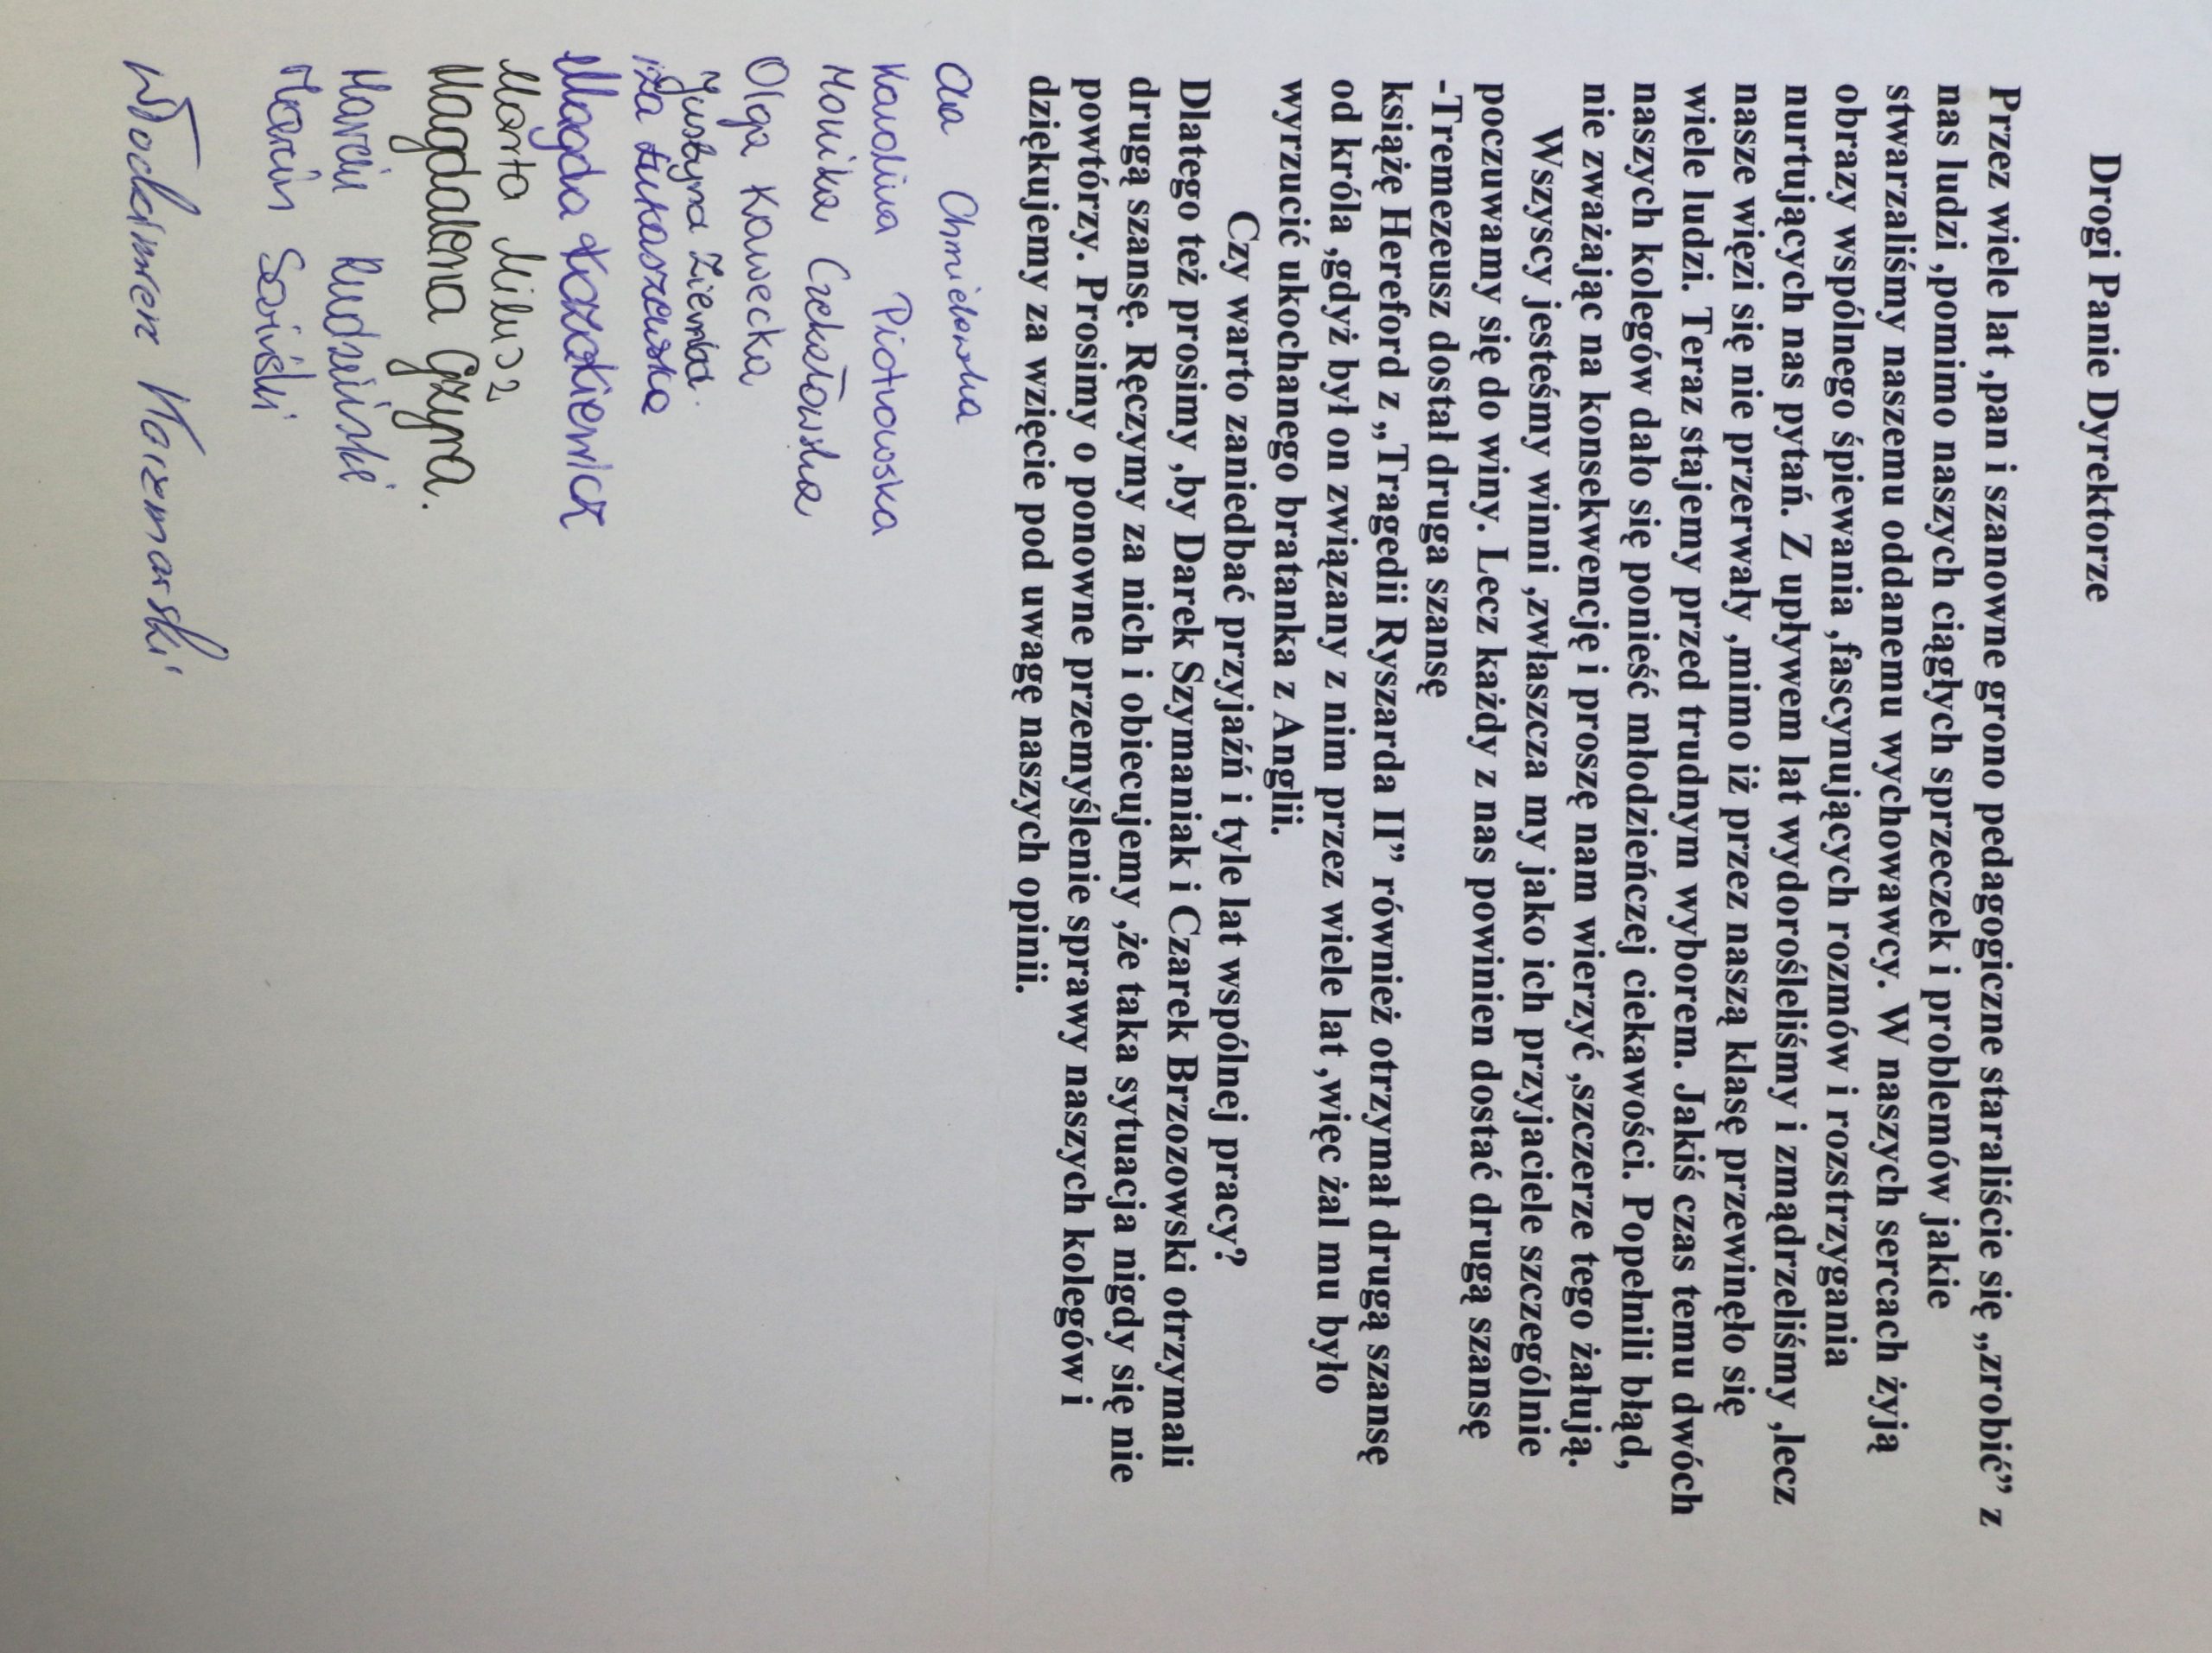 Drogi Panie Dyrektorze
Przez wiele lat ,pan i szanowne grono pedagogiczne staraliście się „zrobić” z
nas ludzi ,pomimo naszych ciągłych sprzeczek i problemów jakie
stwarzaliśmy naszemu oddanemu wychowawcy. W naszych sercach żyją
obrazy wspólnego śpiewania ,fascynujących rozmów i rozstrzygania
nurtujących nas pytań. Z upływem lat wydorośleliśmy i zmądrzeliśmy ,lecz
nasze więzi się nie przerwały ,mimo iż przez naszą klasę przewinęło się
wiele ludzi. Teraz stajemy przed trudnym wyborem. Jakiś czas temu dwóch
naszych kolegów dało się ponieść młodzieńczej ciekawości. Popełnili błąd,
nie zważając na konsekwencję i proszę nam wierzyć ,szczerze tego żałują.
Wszyscy jesteśmy winni ,zwłaszcza my jako ich przyjaciele szczególnie
poczuwamy się do winy. Lecz każdy z nas powinien dostać drugą szansę
-Tremezeusz dostał druga szansę
książę Hereford z „Tragedii Ryszarda II” również otrzymał drugą szansę
od króla ,gdyż był on związany z nim przez wiele lat ,więc żal mu było
wyrzucić ukochanego bratanka z Anglii.
Czy warto zaniedbać przyjaźń i tyle lat wspólnej pracy?
Dlatego też prosimy ,by Darek Szymaniak i Czarek Brzozowski otrzymali
drugą szansę. Ręczymy za nich i obiecujemy ,że taka sytuacja nigdy się nie
powtórzy. Prosimy o ponowne przemyślenie sprawy naszych kolegów i
dziękujemy za wzięcie pod uwagę naszych opinii.
Ola Chmielewska
Karolina Piotrowska
Monika
Olga Kawecka
Justyna Ziemba.
Iza Łukaszewska
Magda
Marta Miłosz
Magdalena Gzyra.
Marcin Rudziński
Marcin
Włodzimierz Kaczmarski